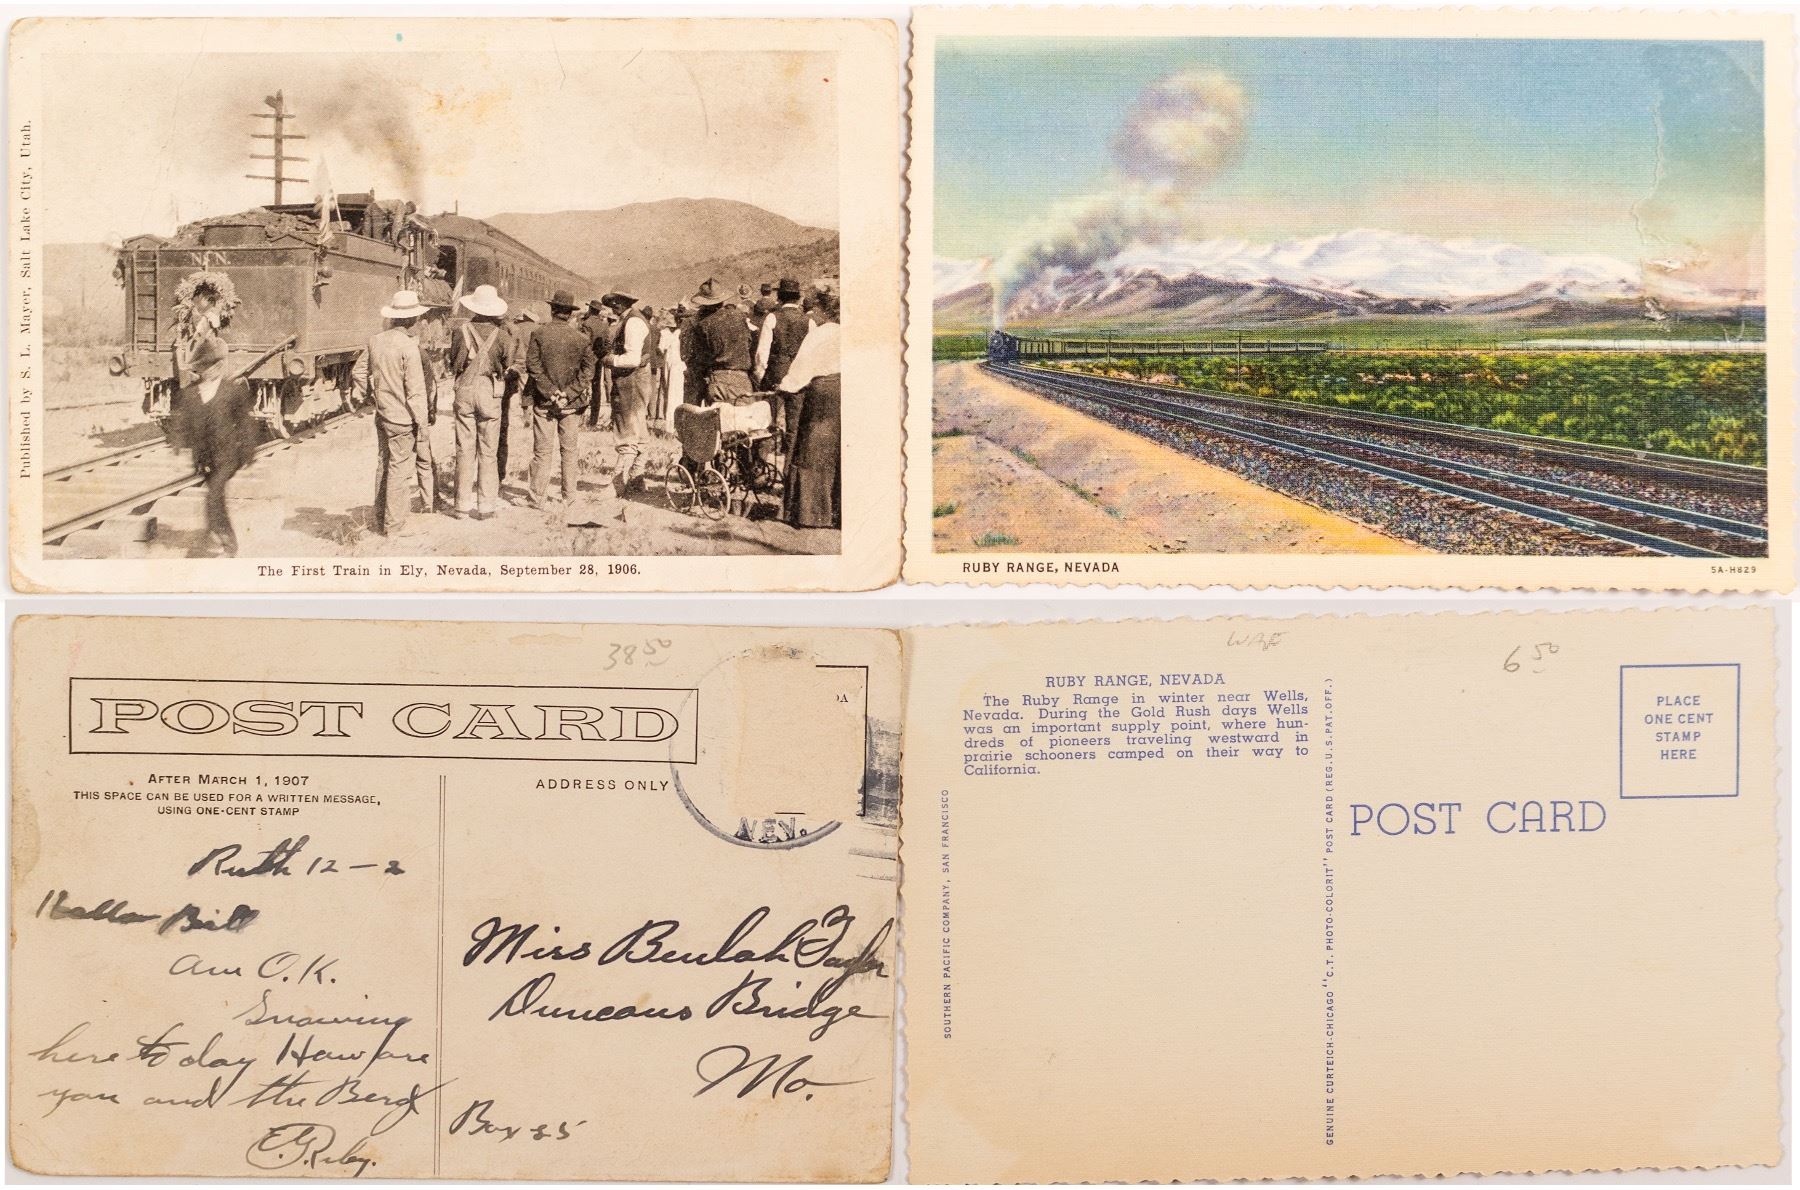 Published by S. L. Mayer, Salt Lake City, Utah.
N N.
The First Train in Ely, Nevada, September 28, 1906.
RUBY RANGE, NEVADA
5A-H829
38 50
POST CARD
AFTER MARCH 1, 1907
THIS SPACE CAN BE USED FOR A WRITTEN MESSAGE,
USING ONE-CENT STAMP
ADDRESS ONLY
NEV.
Ruth 12-2
Hello Bill
am O.K.
Snowing
here to day How are
you and the
Riley.
Miss Beulah Taylor
Duncans Bridge
Mo.
Box 85
6 50
RUBY RANGE, NEVADA
The Ruby Range in winter near Wells,
Nevada. During the Gold Rush days Wells
was an important supply point, where hun-
dreds of pioneers traveling westward in
prairie schooners camped on their way to
California.
SOUTHERN PACIFIC COMPANY, SAN FRANCISCO
GENUINE CURTEICH-CHICAGO "C.T. PHOTO-COLORIT" POST CARD (REG. U.S. PAT. OFF.)
POST CARD
PLACE
ONE CENT
STAMP
HERE